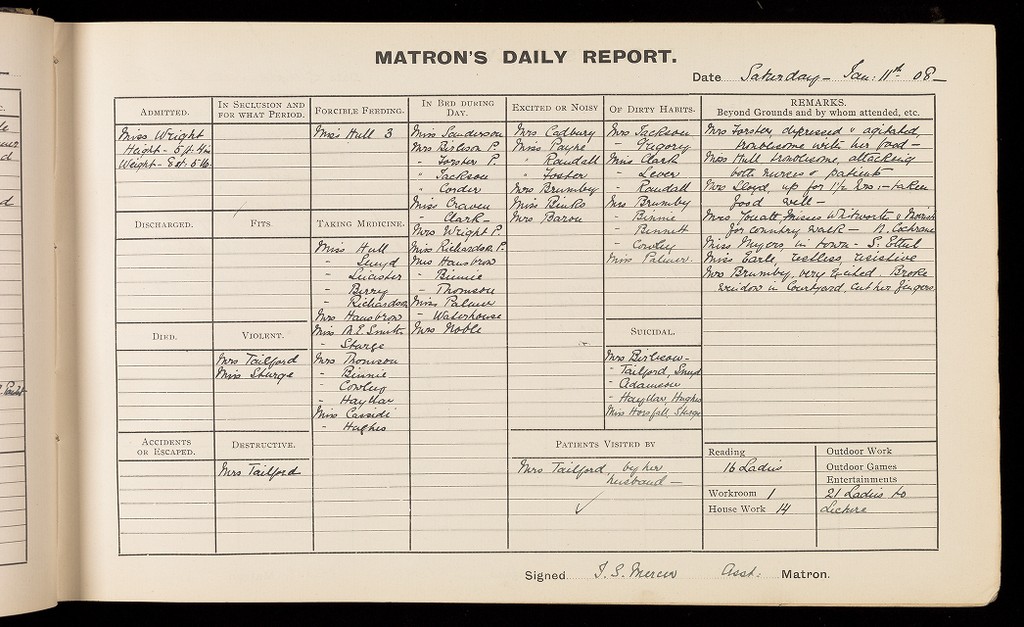 MATRON'S DAILY REPORT.
Date Saturday – Jan: 11th 08 –
ADMITTED.
Miss Wright
Height - 5 ft. 4 in
Weight - 8 st. 5 lb.
IN SECLUSION AND
FOR WHAT PERIOD.
FORCIBLE FEEDING.
Miss Hull 3
IN BED DURING
DAY.
Miss Sanderson
Mrs P.
" Forster P.
" Jackson
" Corder
Miss Craven
- Clark
Mrs Wright P.
Miss Richardson P.
Mrs Hansbrow
- Binnie
- Thomson
Miss Palmer
- Waterhouse
Mrs Noble
EXCITED OR NOISY
Mrs Cadbury
Miss Payne
" Randall
" Foster
Mrs Brumby
Miss Binks
Mrs Baron
OF DIRTY HABITS.
Mrs Jackson
- Gregory
Miss Clark
- Lever
- Randall
Mrs Brumby
- Binnie
- Bennett
- Cowley
Miss Palmer.
REMARKS.
Beyond Grounds and by whom attended, etc.
Mrs Forster depressed & agitated,
troublesome with her food –
Miss Hull troublesome, attacking
both nurses & patients
Mrs Lloyd, up for 1½ hrs :– taken
food well –
Mrs Misses Whitworth &
for country walk – N. Cochrane
Miss Myers, in town – S. Ethel
Miss Earle, restless, resistive
Mrs Brumby, very Excited. Broke
window in Courtyard, cut her fingers.
DISCHARGED.
FITS.
TAKING MEDICINE.
Miss Hull
-
- Leicester
- Berry
- Richardson
Mrs Hansbrow
Miss A. E. Smith
- Sturge
Mrs Thomson
- Binnie
- Cowley
- Hayllar
Miss Cassidi
- Hughes
DIED.
VIOLENT.
Mrs Tailford
Miss Sturge
SUICIDAL.
Mrs
- Tailford,
- Adamson
- Hayllar, Hughes
Miss Horsfall, Sturge
ACCIDENTS
OR ESCAPED.
DESTRUCTIVE.
Mrs Tailford
PATIENTS VISITED BY
Mrs Tailford, by her
husband –
Reading
16 Ladies
Workroom 1
House Work 14
Outdoor Work
Outdoor Games
Entertainments
21 Ladies to
Lecture
Signed T. S. Mercer Asst: Matron.